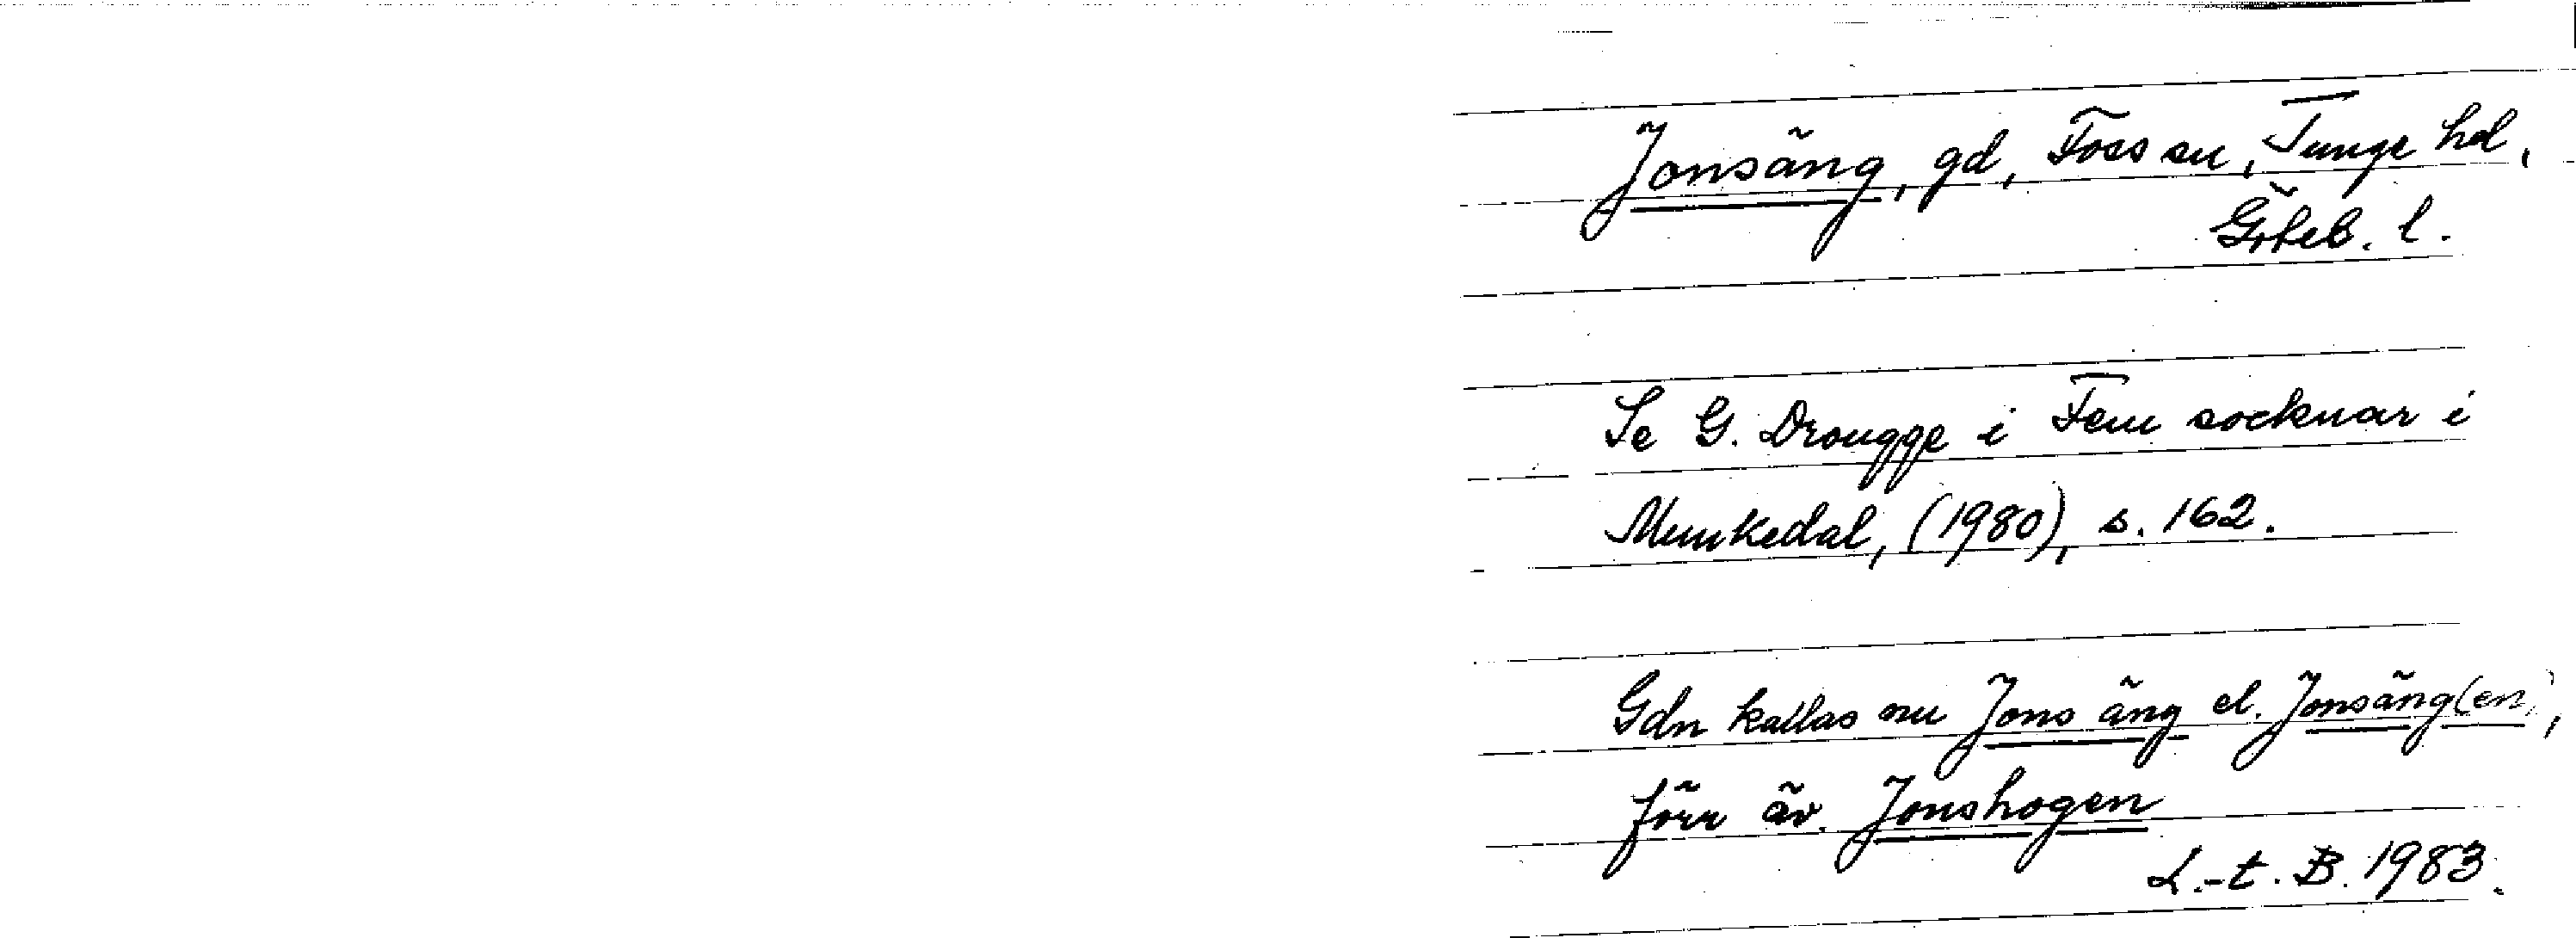 Jonsäng, gd, Foss sn, Tunge hd,
Göteb. l.
Se G. Drougge i Fem socknar i
Munkedal, (1980), s. 162.
Gdn kallas nu Jons äng el. Jonsäng(en),
förr äv. Jonshogen
L.-t. B. 1983.